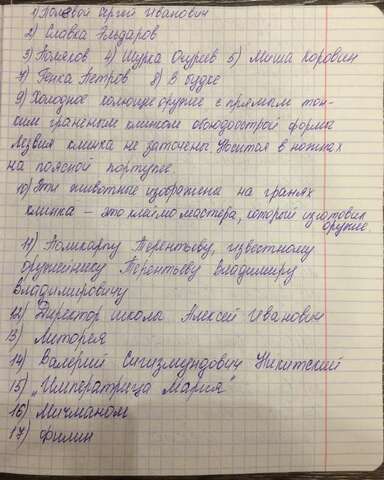 1) Полевой Сергей Иванович
2) Славка Эльдаров
3) Поляков 4) Шурка Огуреев 5) Миша Коровин
7) Генка Петров 8) В будке
9) Холодное колющее оружие с прямым тон-
ким граненым клинком обоюдоострой формы
Лезвия клинка не заточены. Носится в ножнах
на поясной портупее.
10) Эти животные изображена на гранях
клинка – это клеймо мастера, который изготовил
оружие
11) Поликарпу Терентьеву, известному
оружейнику Терентьеву Владимиру
Владимировичу
12) Директор школы Алексей Иванович
13) Литорея
14) Валерий Сигизмундович Никитский
15) „Императрица Мария"
16) Мичманом
17) Филин